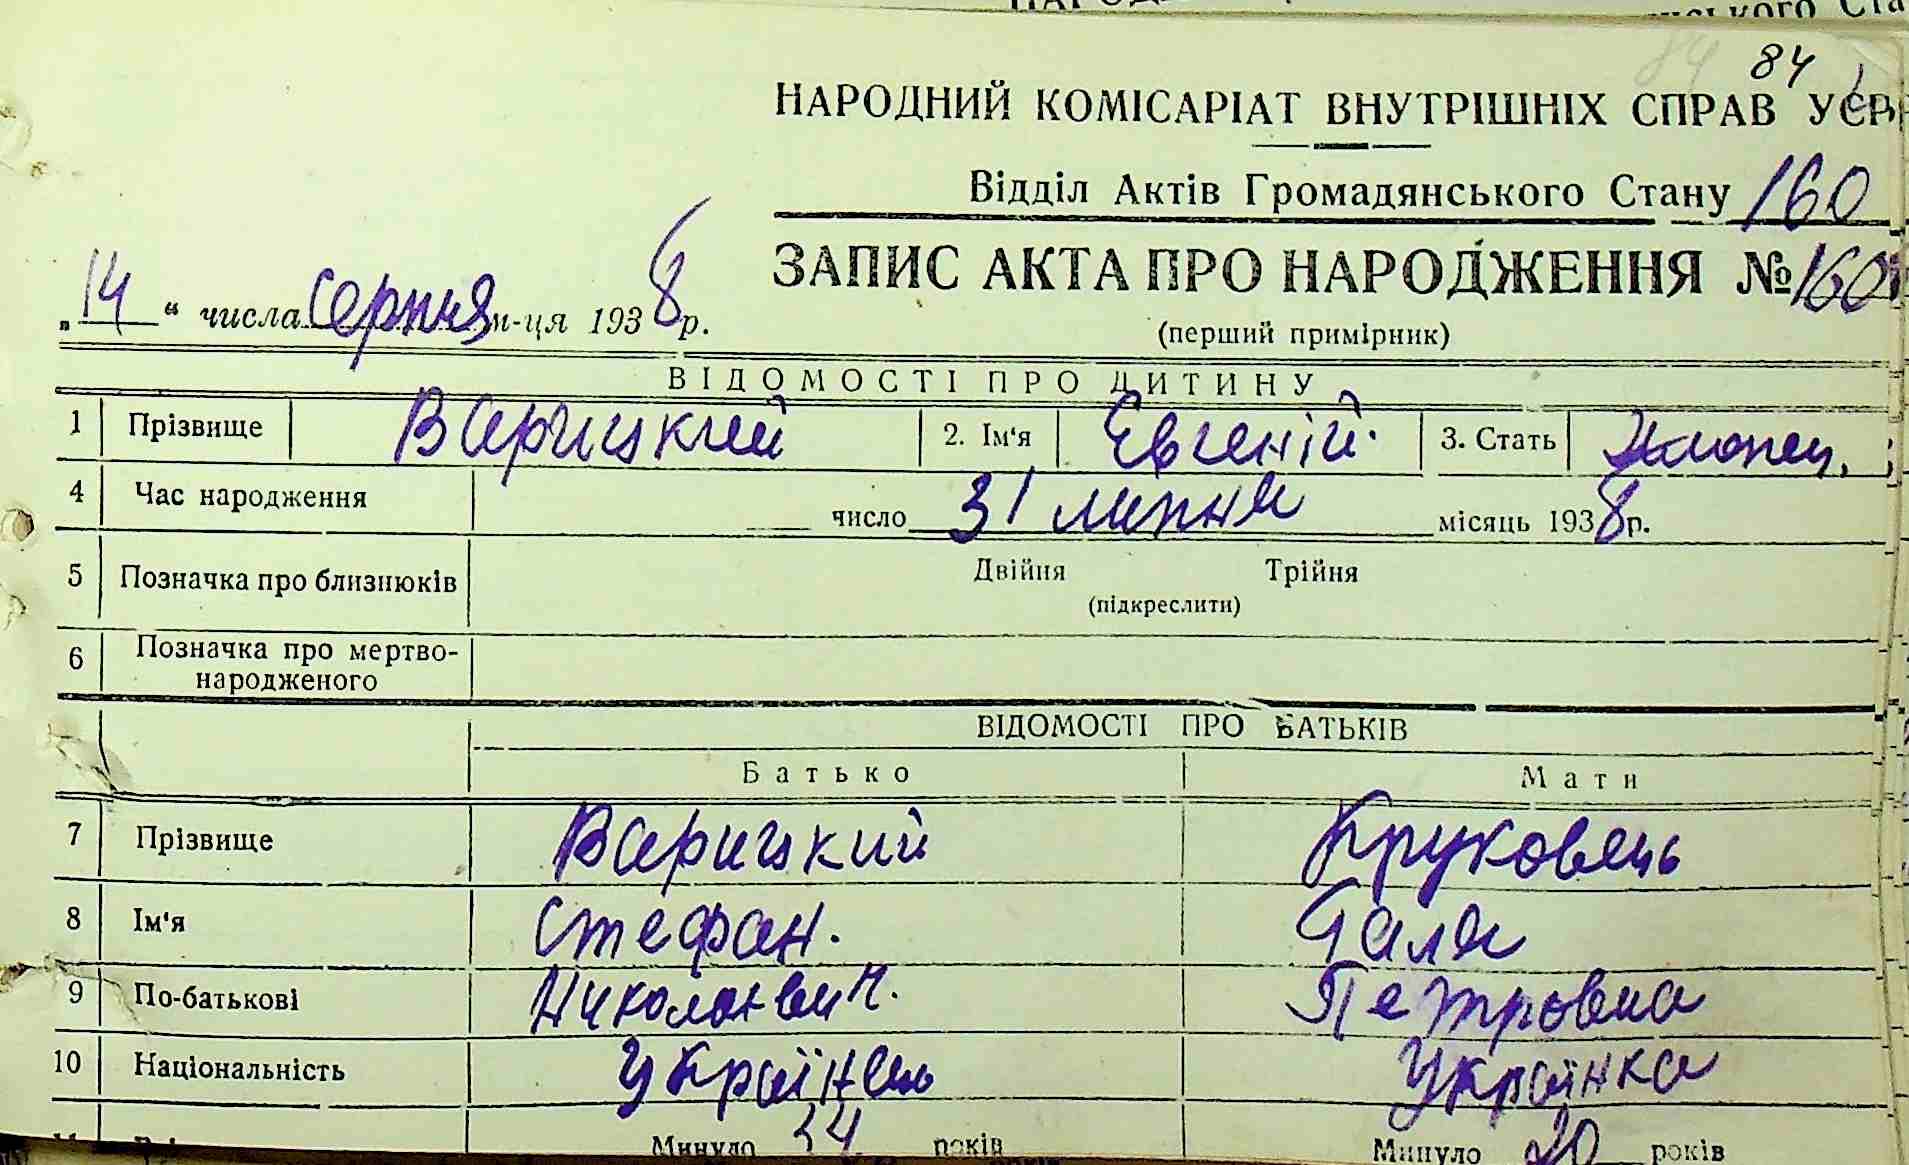 84
НАРОДНИЙ КОМІСАРІАТ ВНУТРІШНІХ СПРАВ УСРР
Відділ Актів Громадянського Стану 160
ЗАПИС АКТА ПРО НАРОДЖЕННЯ № 160
„14“ числа серпня м-ця 1938 р.
(перший примірник)
ВІДОМОСТІ ПРО ДИТИНУ
1 Прізвище Варицкий 2. Ім'я Евгеній 3. Стать Хлопец.
4 Час народження число 31 липня місяць 1938 р.
5 Позначка про близнюків Двійня Трійня
(підкреслити)
6 Позначка про мертво-
народженого
ВІДОМОСТІ ПРО БАТЬКІВ
Батько Мати
7 Прізвище Варицкий Круковець
8 Ім'я Стефан. Галя
9 По-батькові Николаевич. Петровна
10 Національність Українець Українка
Минуло 34 років Минуло 20 років